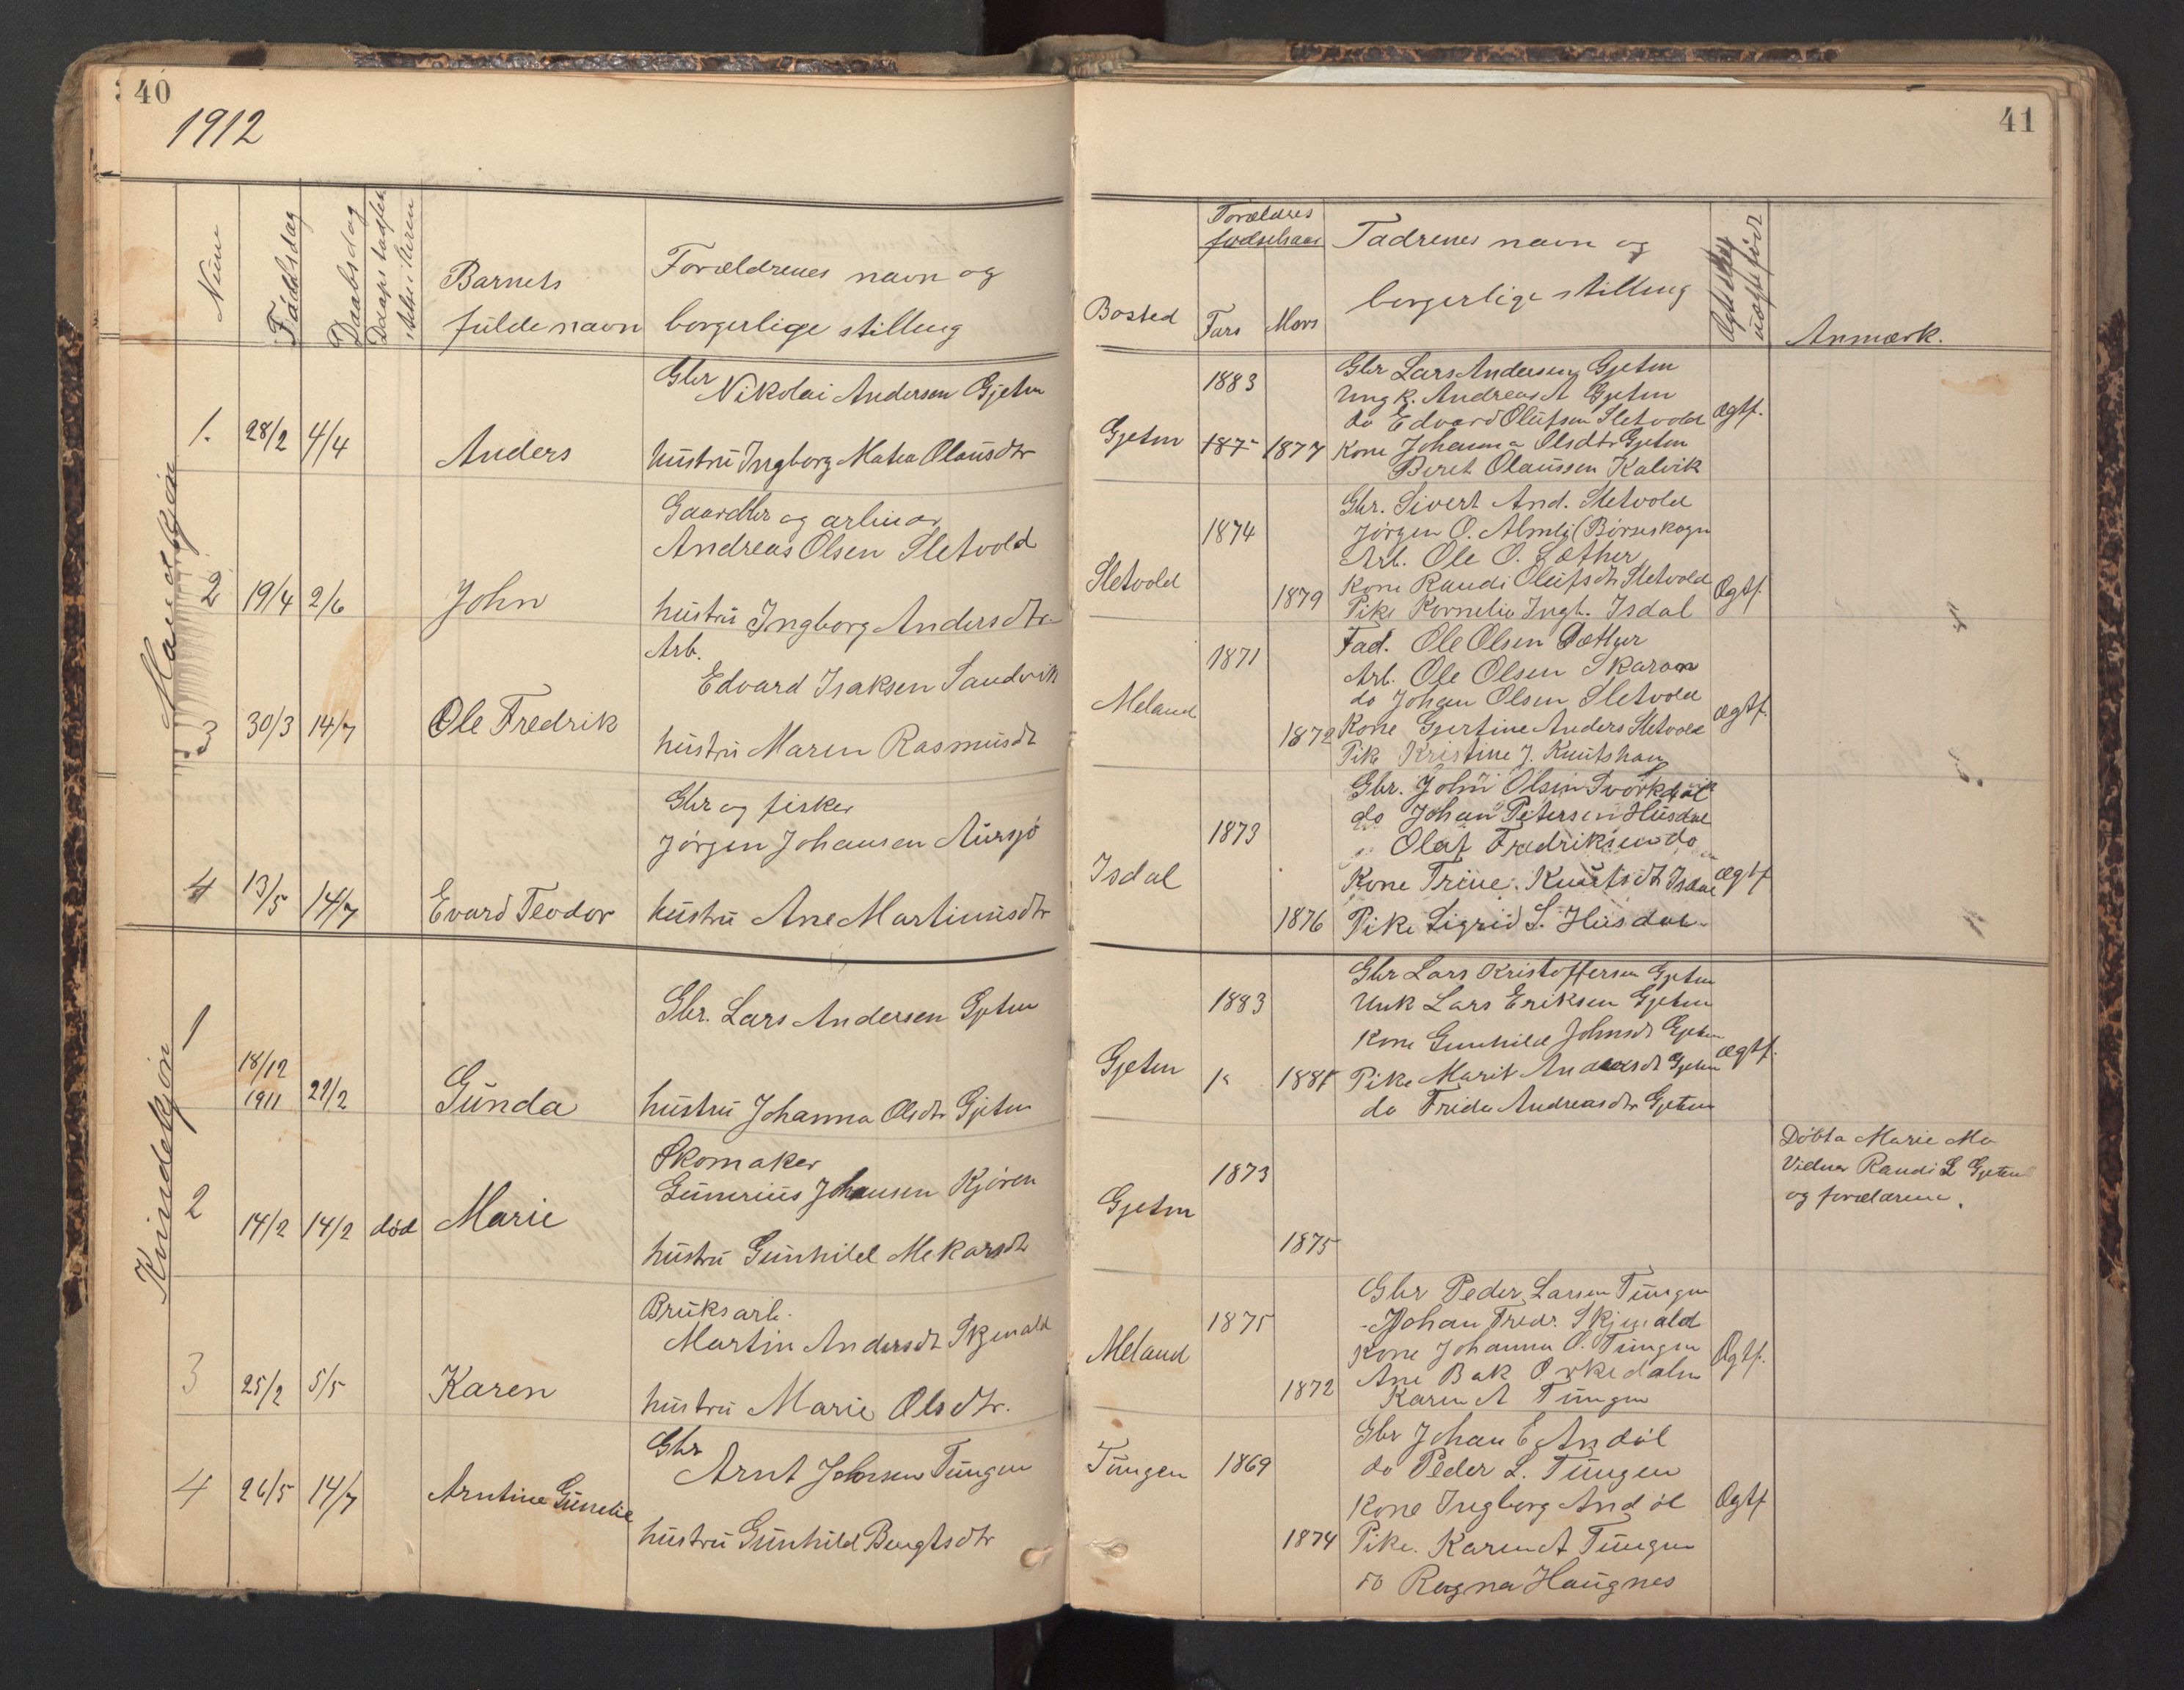 40
1912
Num
Fødselsdag
Daabsdag
Barnets
fulde navn
Forældrenes navn og
borgerlige stilling
Mandkjøn
1. 28/2 4/4 Anders
Gbr Nikolai Andersen Gjeten
hustru Ingborg Matea Olausdtr
2 19/4 2/6 John
Gaardbr og
Andreas Olsen Sletvold
hustru Ingborg Andersdtr.
3 30/3 14/7 Ole Fredrik
Arb.
Edvard Isaksen Sandvik
hustru Maren Rasmusdt
4 13/5 14/7 Evard Teodor
Gbr og fisker
Jørgen Johansen Aursjø
hustru Ane Martinusdtr
Kvindekjøn
1 18/12 1911 Gunda
Gbr. Lars Andersen Gjeten
hustru Johanna Olsdtr Gjeten
2 14/2 14/2 død Marie
Skomaker
Gunerius Johansen Kjøren
hustru Gunhild
3 25/2 5/5 Karen
Bruksarb.
Martin Andersdt
hustru Marie Olsdtr.
4 26/5 14/7 Arntine Gunelie
Gbr
Arnt Johnsen Tungen
hustru Gunhild Bengtsdtr
41
Forældres
fødselsaar
Bosted Fars Mors
Fadrenes navn og
borgerlige stilling
Anmærk.
Gjeten 1883 187- 1877
Gbr Lars Andersen Gjeten
Ungk. Andreas A Gjeten
do Edvard Olufsen Sletvold
Kone Johanna Olsdtr Gjeten
Beret Olaussen Kalvik
Ægtf.
Sletvold 1874 1879
Gbr. Sivert And. Sletvold
Jørgen O. Almli (Børseskogn
Arb. Ole O. Sæther
Kone Randi Olufsdt Sletvold
Pike Kornelia Ingb. Isdal
Ægtf.
Meland 1871 1872
Fad. Ole Olsen Sæther
Arb. Ole Olsen
do Johan Olsen Sletvold
Kone Gjertine Anders Sletvold
Pike Kristine J. Knutshaug
Ægtf.
Isdal 1873 1876
Gbr. John Olsen
do Johan Petersen Husdal
Olaf Fredriksen do
Kone Trine Knutsdt Isdal
Pike Sigrid S. Husdal
Ægtf
Gjeten 1883
Gbr Lars Kristoffersen Gjeten
Unk Lars Eriksen Gjeten
Kone Gunhild Johnsdt Gjeten
Pike Marit Andersdt Gjeten
do Frida Andreasdtr Gjeten
Ægtf.
Gjeten 1873 1875
Døbt a Marie Mo
Vidner Randi L Gjeten
og forældrene.
Meland 1875 1872
Gbr Peder Larsen Tungen
Johan Fredr.
Kone Johanna O. Tungen
Ane Bak Orkedalen
Karen A Tungen
Ægtf.
Tungen 1869 1874
Gbr Johan E Andøl
do Peder L. Tungen
Kone Ingborg Andøl
Pike. Karen A Tungen
do Ragna Haugnes
Ægtf